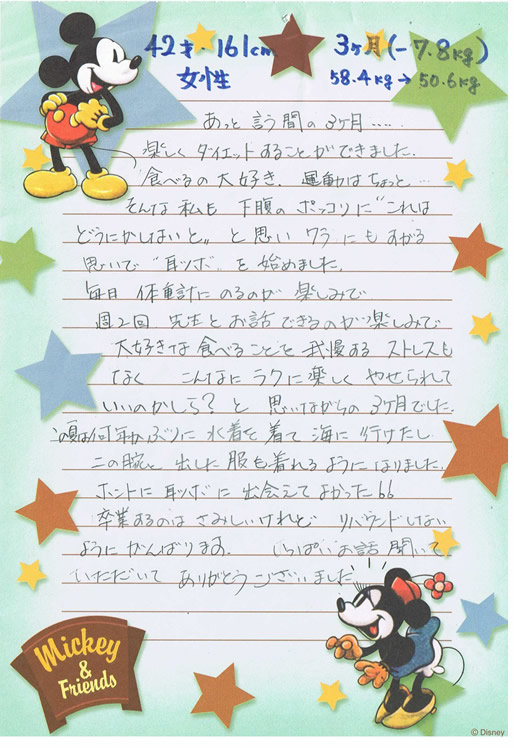 42才・161cm 3ヶ月(-7.8kg)
女性 58.4kg→50.6kg
あっと言う間の3ヶ月……
楽しくダイエットすることができました。
食べるの大好き、運動はちょっと…
そんな私も下腹のポッコリに"これは
どうにかしないと"と思いワラにもすがる
思いで"耳ツボ"を始めました。
毎日体重計にのるのが楽しみで
週2回先生とお話できるのが楽しみで
大好きな食べることを我慢するストレスも
なくこんなにラクに楽しくやせられて
いいのかしら?と思いながらの3ヶ月でした。
この夏は何年かぶりに水着を着て海に行けたし
二の腕を出した服も着れるようになりました。
ホントに耳ツボに出会えてよかった!!
卒業するのはさみしいけれどリバウンドしない
ようにがんばります。いっぱいお話聞いて
いただいてありがとうございました
Mickey
&
Friends
© Disney